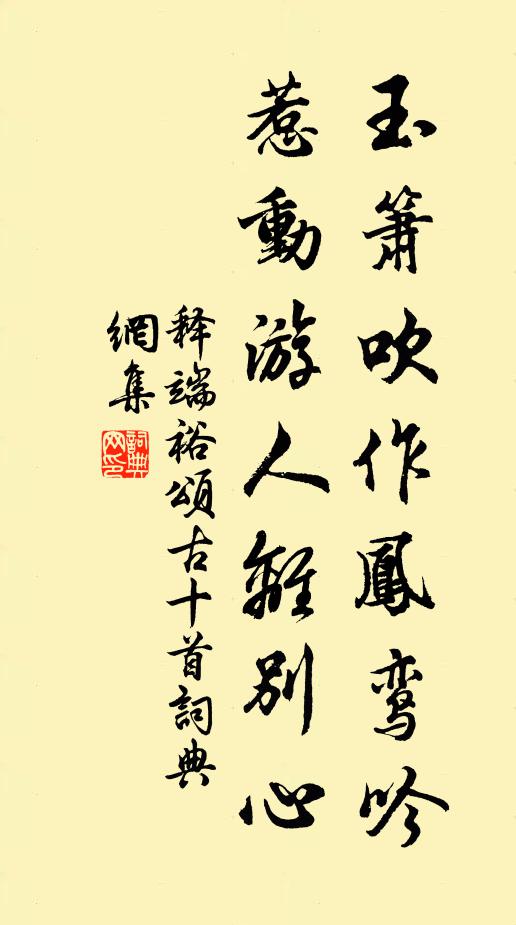 玉箫吹作鳳鸾吟
惹動游人離别心
释端裕頌古十首詞典
網集
詞典
网印